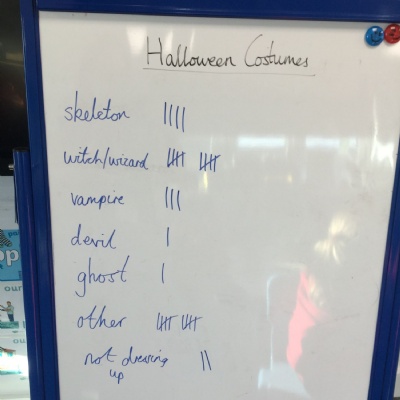 Halloween Costumes
skeleton ||||
witch/wizard 卌 卌
vampire |||
devil |
ghost |
other 卌 卌
not dressing ||
up